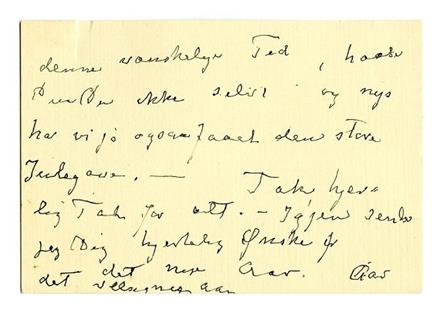 denne vanskelige Tid, haabe
ikke selv! og nys
har vi jo ogsaa faaet den store
Julegave. — Tak hjer=
lig Tak for alt. — Igjen sender
jeg Dig hjertelig Ønske for
det det nye Aar.